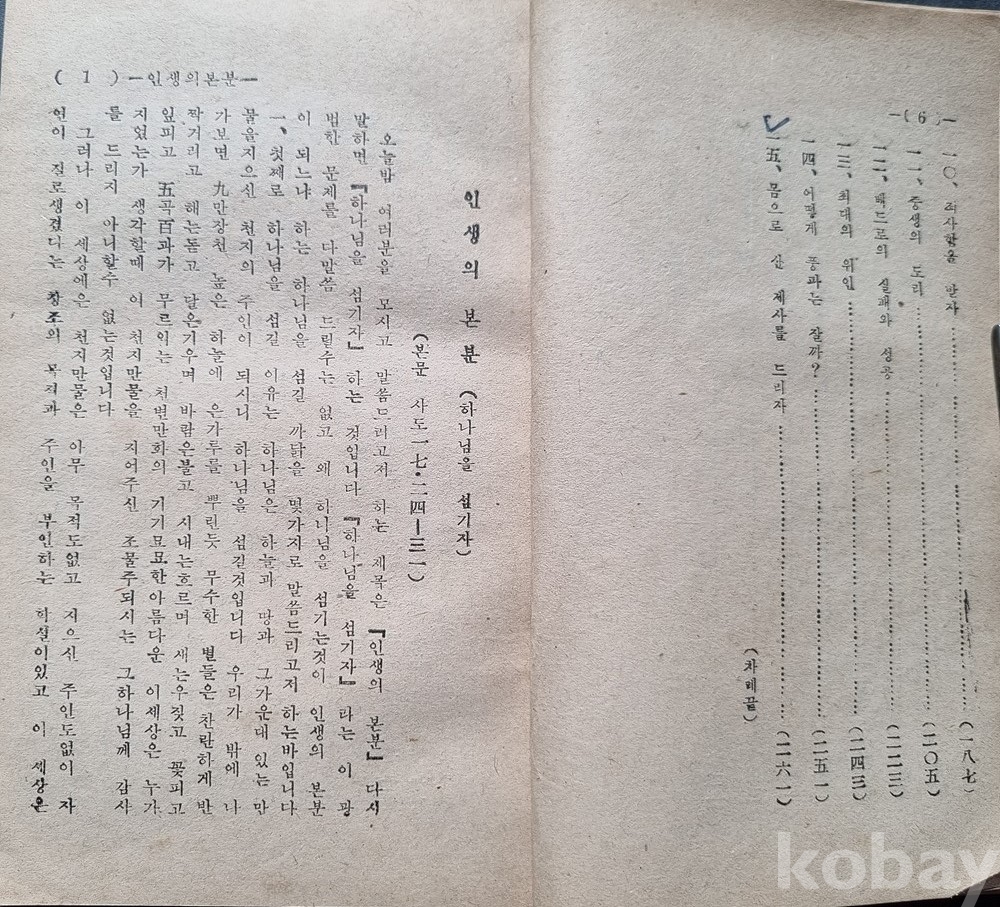 —( 6 )—
一〇、리사함을 받자 (一八七)
一一、중생의 도리 (二〇五)
一二、베드로의 실패와 성공 (二二三)
一三、최대의 위인 (二四三)
一四、어떻게 풍파는 잘까? (二五一)
一五、몸으로 산 제사를 드리자 (二六一)
(차례끝)
( 1 ) —인생의본분—
인생의 본분 (하나님을 섬기자)
(본문 사도一七・二四—三一)
오늘밤 여러분을 모시고 말씀드리고저 하는 제목은 『인생의 본분』 다시
말하면 『하나님을 섬기자』 하는 것입니다 『하나님을 섬기자』 라는 이 광
범한 문제를 다말씀 드릴수는 없고 왜 하나님을 섬기는것이 인생의 본분
이 되느냐 하는 하나님을 섬길 까닭을 몇가지로 말씀드리고저 하는바입니다
一、첫째로 하나님을 섬길 이유는 하나님은 하늘과 땅과 그가운대 있는 만
물을지으신 천지의 주인이 되시니 하나님을 섬길것입니다 우리가 밖에 나
가보면 九만장천 높은 하늘에 은가루를 뿌린듯 무수한 별들은 찬란하게 반
짝거리고 해는돋고 달은기우며 바람은불고 시내는흐르며 새는우짖고 꽃피고
잎피고 五곡百과가 무르익는 천변만화의 기기묘묘한아름다운 이세상은 누가
지였는가 생각할때 이 천지만물을 지어주신 조물주되시는 그하나님께 감사
를 드리지 아니할수 없는것입니다
그러나 이 세상에은 천지만물은 아무 목적도없고 지으신 주인도없이 자
연이 질로생겼다는 창조의 목적과 주인을 부인하는 학설이있고 이 세상은
kobay